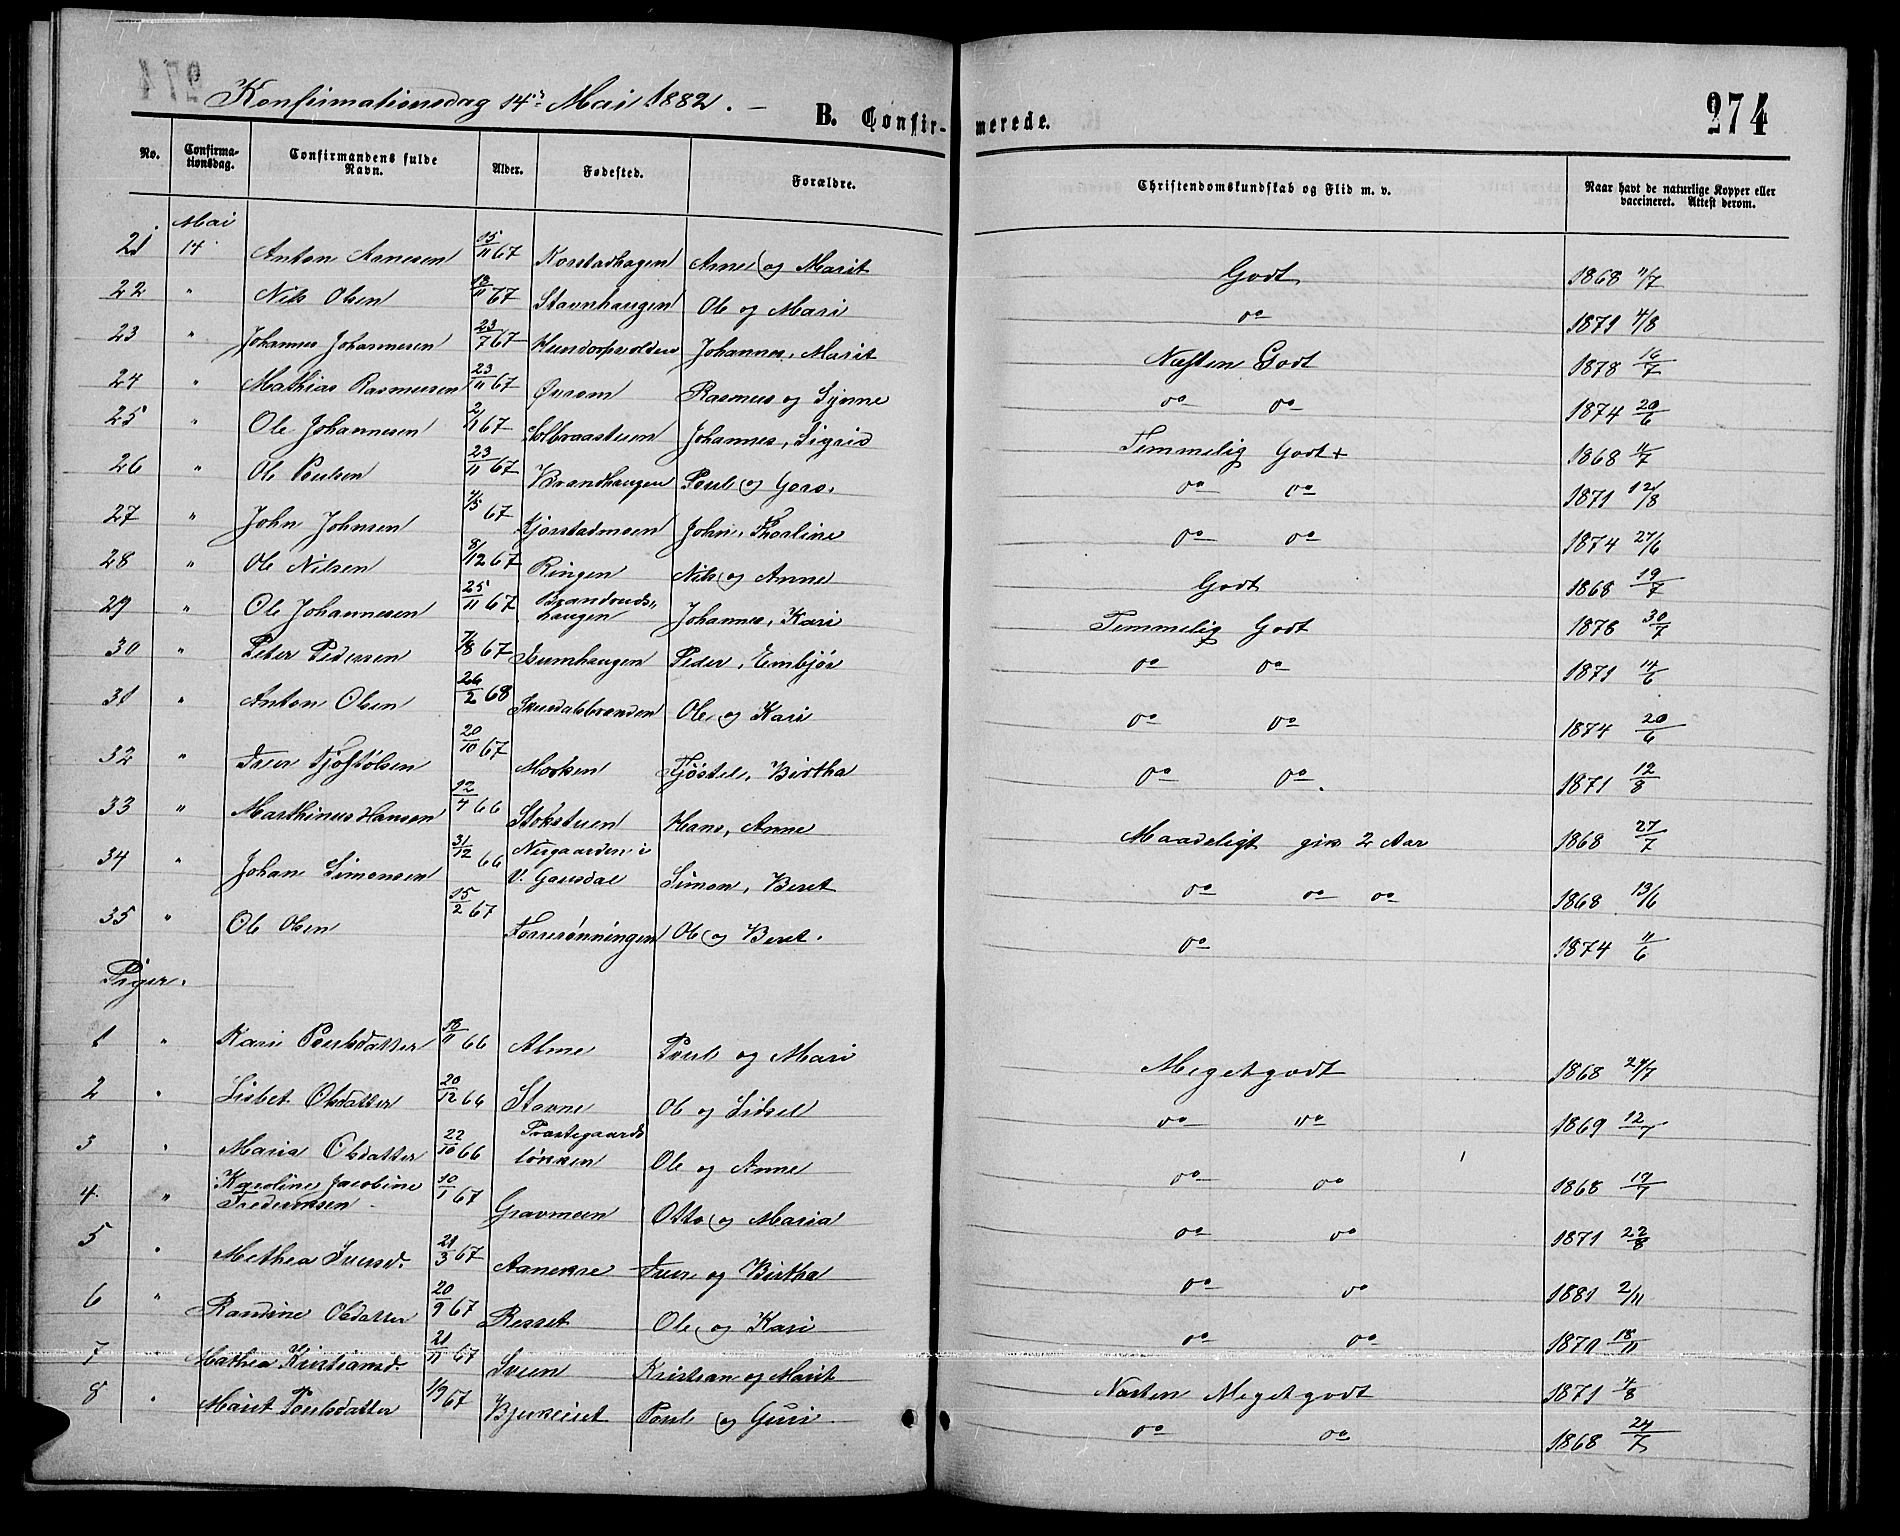 274
Konfirmationsdag 14de Mai 1882. –
B. Confir-merede.
274
No. Confirma-tionsdag. Confirmandens fulde Navn. Alder. Fødested. Forældre. Christendomskundskab og Flid m. v. Naar havt de naturlige Kopper eller vaccineret. Attest derom.
Mai
21 14 Anton Arnesen 15/11 67 Korstadhagen Arne og Marit Godt 1868 11/7
22 " Nils Olsen 18/11 67 Stavnhaugen Ole og Mari do 1871 4/8
23 " Johannes Johannesen 23/7 67 Hundorpvolden Johannes, Marit Næsten Godt 1878 16/7
24 " Mathias Rasmussen 23/11 67 Øverom Rasmus og Synne do do 1874 20/6
25 " Ole Johannesen 2/1 67 Holbraastuen Johannes, Sigrid Temmelig Godt + 1868 11/7
26 " Ole Poulsen 23/11 67 Brandhaugen Poul og Goro. do do 1871 12/8
27 " John Johnsen 4/5 67 Kjorstadmoen John, Thorline do do 1874 27/6
28 " Ole Nilsen 8/12 67 Ringen Nils og Anne Godt 1868 19/7
29 " Ole Johannesen 25/11 67 Brandvolds-haugen Johannes, Kari Temmelig Godt 1878 30/7
30 " Peter Pedersen 7/8 67 Lumhaugen Peder, Embjør do do 1871 14/6
31 " Anton Olsen 26/2 68 Skurdalsbrenden Ole og Kari do do 1874 20/6
32 " Iver Tjøstolsen 20/10 67 Morken Tjøstel, Birtha do do. 1871 12/8
33 " Marthinus Hansen 12/4 66 Stokstuen Hans, Anne Maadeligt gik 2 Aar 1868 27/7
34 " Johan Simensen 31/12 66 Nergaarden i V. Gausdal Simon, Beret do do do 1868 13/6
35 " Ole Olsen 15/2 67 Forrønningen Ole og Beret. do 1874 11/6
Piger.
1 " Kari Poulsdatter 18/11 66 Alme Poul og Mari Megetgodt 1868 24/7
2 " Lisbet Olsdatter 20/12 66 Stavne Ole og Sidsel do do 1869 12/7
3 " Maria Olsdatter 22/10 66 Præstegaards løkken Ole og Anne do do 1868 19/7
4 " Karoline Jacobine Frederiksen 10/1 67 Gravmoen Otto og Maria do do 1871 22/8
5 " Methea Iversd. 21/3 67 Aanekre Iver og Birtha do do 1881 2/11
6 " Randine Olsdatter 20/9 67 Resset Ole og Kari do do 1870 18/11
7 " Mathea Kristiansd. 21/11 67 Sveen Kristian og Marit Næsten Megetgodt 1871 4/8
8 " Marit Poulsdatter 1/9 67 Bjukeiset Poul og Guri do do 1868 24/7